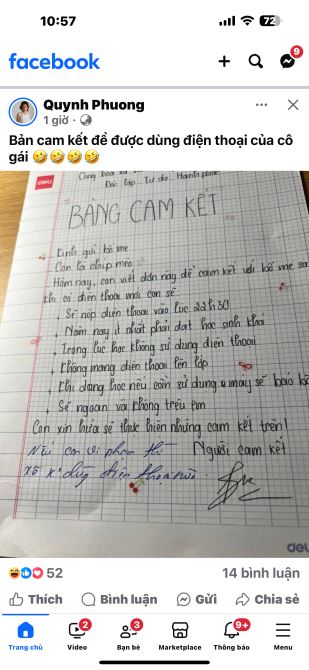 10:57
72
facebook
9
Quynh Phuong
1 giờ
Bản cam kết để được dùng điện thoại của cô
gái 🤣🤣🤣🤣
deli
Cộng hòa xã
Độc lập - Tự do - Hạnh phúc
BẢNG CAM KẾT
Kính gửi bố mẹ
Con là chip mèo.
Hôm nay, con viết đơn này để cam kết với bố mẹ sa
khi có điện thoại mới con sẽ:
Sẽ nộp điện thoại vào lúc 22h30
Năm nay ít nhất phải đạt học sinh khá
Trong lúc học không sử dụng điện thoại
Không mang điện thoại lên lớp
Khi đang học nếu cần sử dụng máy sẽ báo bố
Sẽ ngoan và không trêu em
Con xin hứa sẽ thực hiện những cam kết trên!
Nếu con vi phạm thì
Người cam kết
dùng điện thoại nữa.
deli
52
14 bình luận
Thích
Bình luận
Gửi
Chia sẻ
2
3
9+
Trang chủ
Video
Bạn bè
Marketplace
Thông báo
Menu